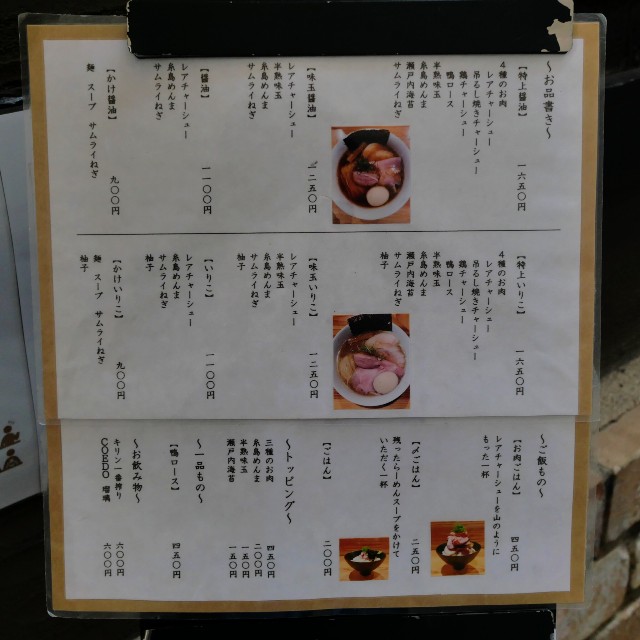 ～お品書き～
【特上醤油】 一六五〇円
４種のお肉
レアチャーシュー
吊るし焼きチャーシュー
鶏チャーシュー
鴨ロース
半熟味玉
糸島めんま
瀬戸内海苔
サムライねぎ
【味玉醤油】 一二五〇円
レアチャーシュー
半熟味玉
糸島めんま
サムライねぎ
【醤油】 一一〇〇円
レアチャーシュー
糸島めんま
サムライねぎ
【かけ醤油】 九〇〇円
麺 スープ サムライねぎ
【特上いりこ】 一六五〇円
４種のお肉
レアチャーシュー
吊るし焼きチャーシュー
鶏チャーシュー
鴨ロース
半熟味玉
糸島めんま
瀬戸内海苔
サムライねぎ
柚子
【味玉いりこ】 一二五〇円
レアチャーシュー
半熟味玉
糸島めんま
サムライねぎ
柚子
【いりこ】 一一〇〇円
レアチャーシュー
糸島めんま
サムライねぎ
柚子
【かけいりこ】 九〇〇円
麺 スープ サムライねぎ
柚子
～ご飯もの～
【お肉ごはん】 四五〇円
レアチャーシューを山のように
もった一杯
【〆ごはん】 二五〇円
残ったらーめんスープをかけて
いただく一杯
【ごはん】 二〇〇円
～トッピング～
三種のお肉 四五〇円
糸島めんま 二〇〇円
半熟味玉 一五〇円
瀬戸内海苔 一五〇円
～一品もの～
【鴨ロース】 四五〇円
～お飲み物～
キリン一番搾り 六〇〇円
COEDO 瑠璃 六〇〇円